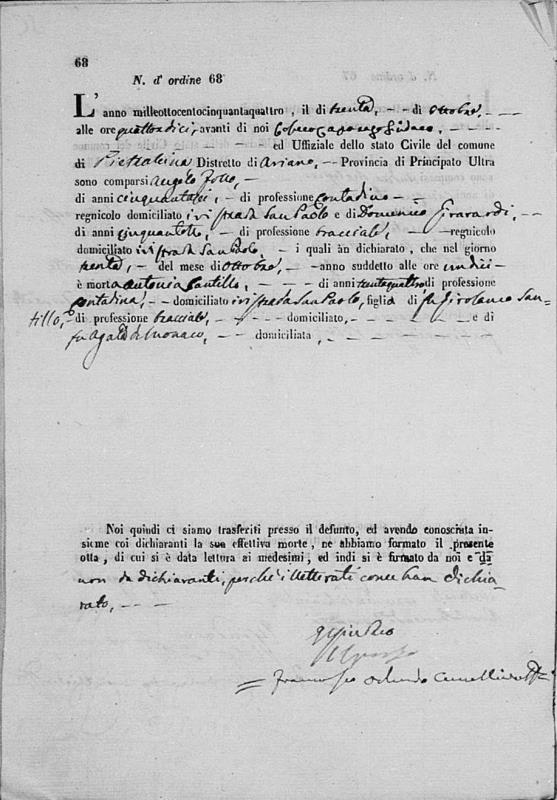 68
N. d' ordine 68
L' anno milleottocentocinquantaquattro, il di trenta, – – di ottobre, – –
alle ore quattordici, avanti di noi Sindaco, – – –
– – – – – ed Uffiziale dello stato Civile del comune
di Pietralcina Distretto di Ariano, – Provincia di Principato Ultra
sono comparsi Angelo Zollo, –
di anni – di professione contadino – –
regnicolo domiciliato ivi strada San Paolo e di Domenico Girardi, – –
di anni cinquantotto, – di professione bracciale, – – regnicolo
domiciliato ivi strada San Paolo, – i quali àn dichiarato, che nel giorno
trenta, – del mese di ottobre, – – anno suddetto alle ore undici –
è morta Antonia Santillo, – – – – di anni trentaquattro di professione
contadina, – – domiciliato ivi strada San Paolo, figlia di fu Girolamo San-
tillo, di professione bracciale, – – – domiciliato, – – – – e di
fu Agata di Monaco, – – domiciliata, – – – – – –
Noi quindi ci siamo trasferiti presso il defunto, ed avendo conosciuta in-
sieme coi dichiaranti la sue effettiva morte, ne abbiamo formato il presente
otta, di cui si è data lettura ai medesimi, ed indi si è firmato da noi e da
non da dichiaranti, perchè illetterati come han dichia-
rato, – – –
Il Sindaco
= Francesco Orlando Cancelliere =